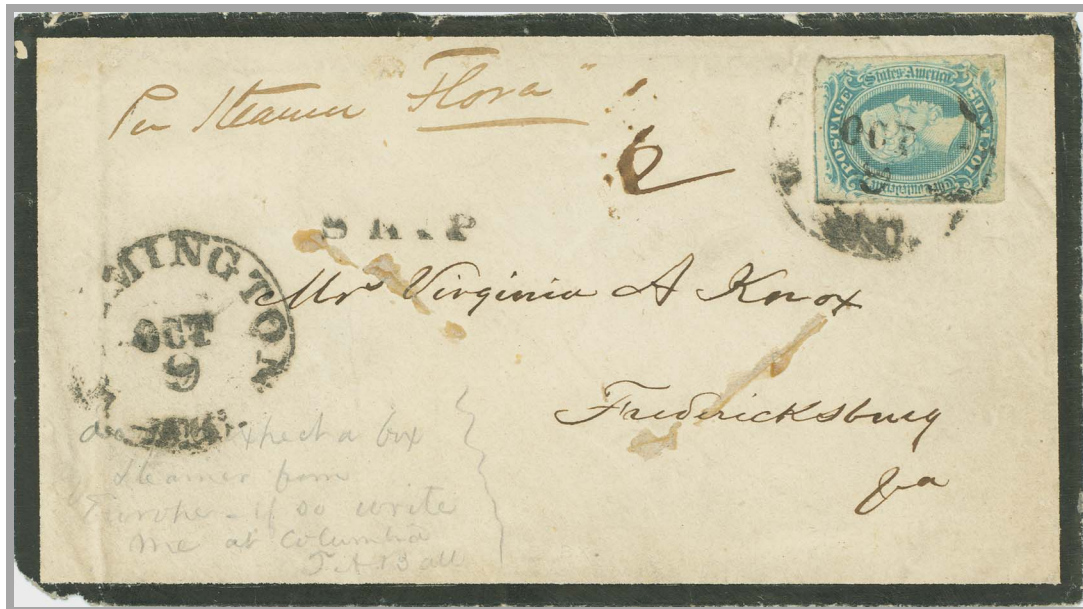 Per Steamer "Flora"
6
POSTAGE
States America
OCT
SHIP
MINGTON
OCT
9
Mrs Virginia A Knox
Fredericksburg
Va
expect a box
steamer from
Europe - if so write
me at Columbia
T. A. Ball